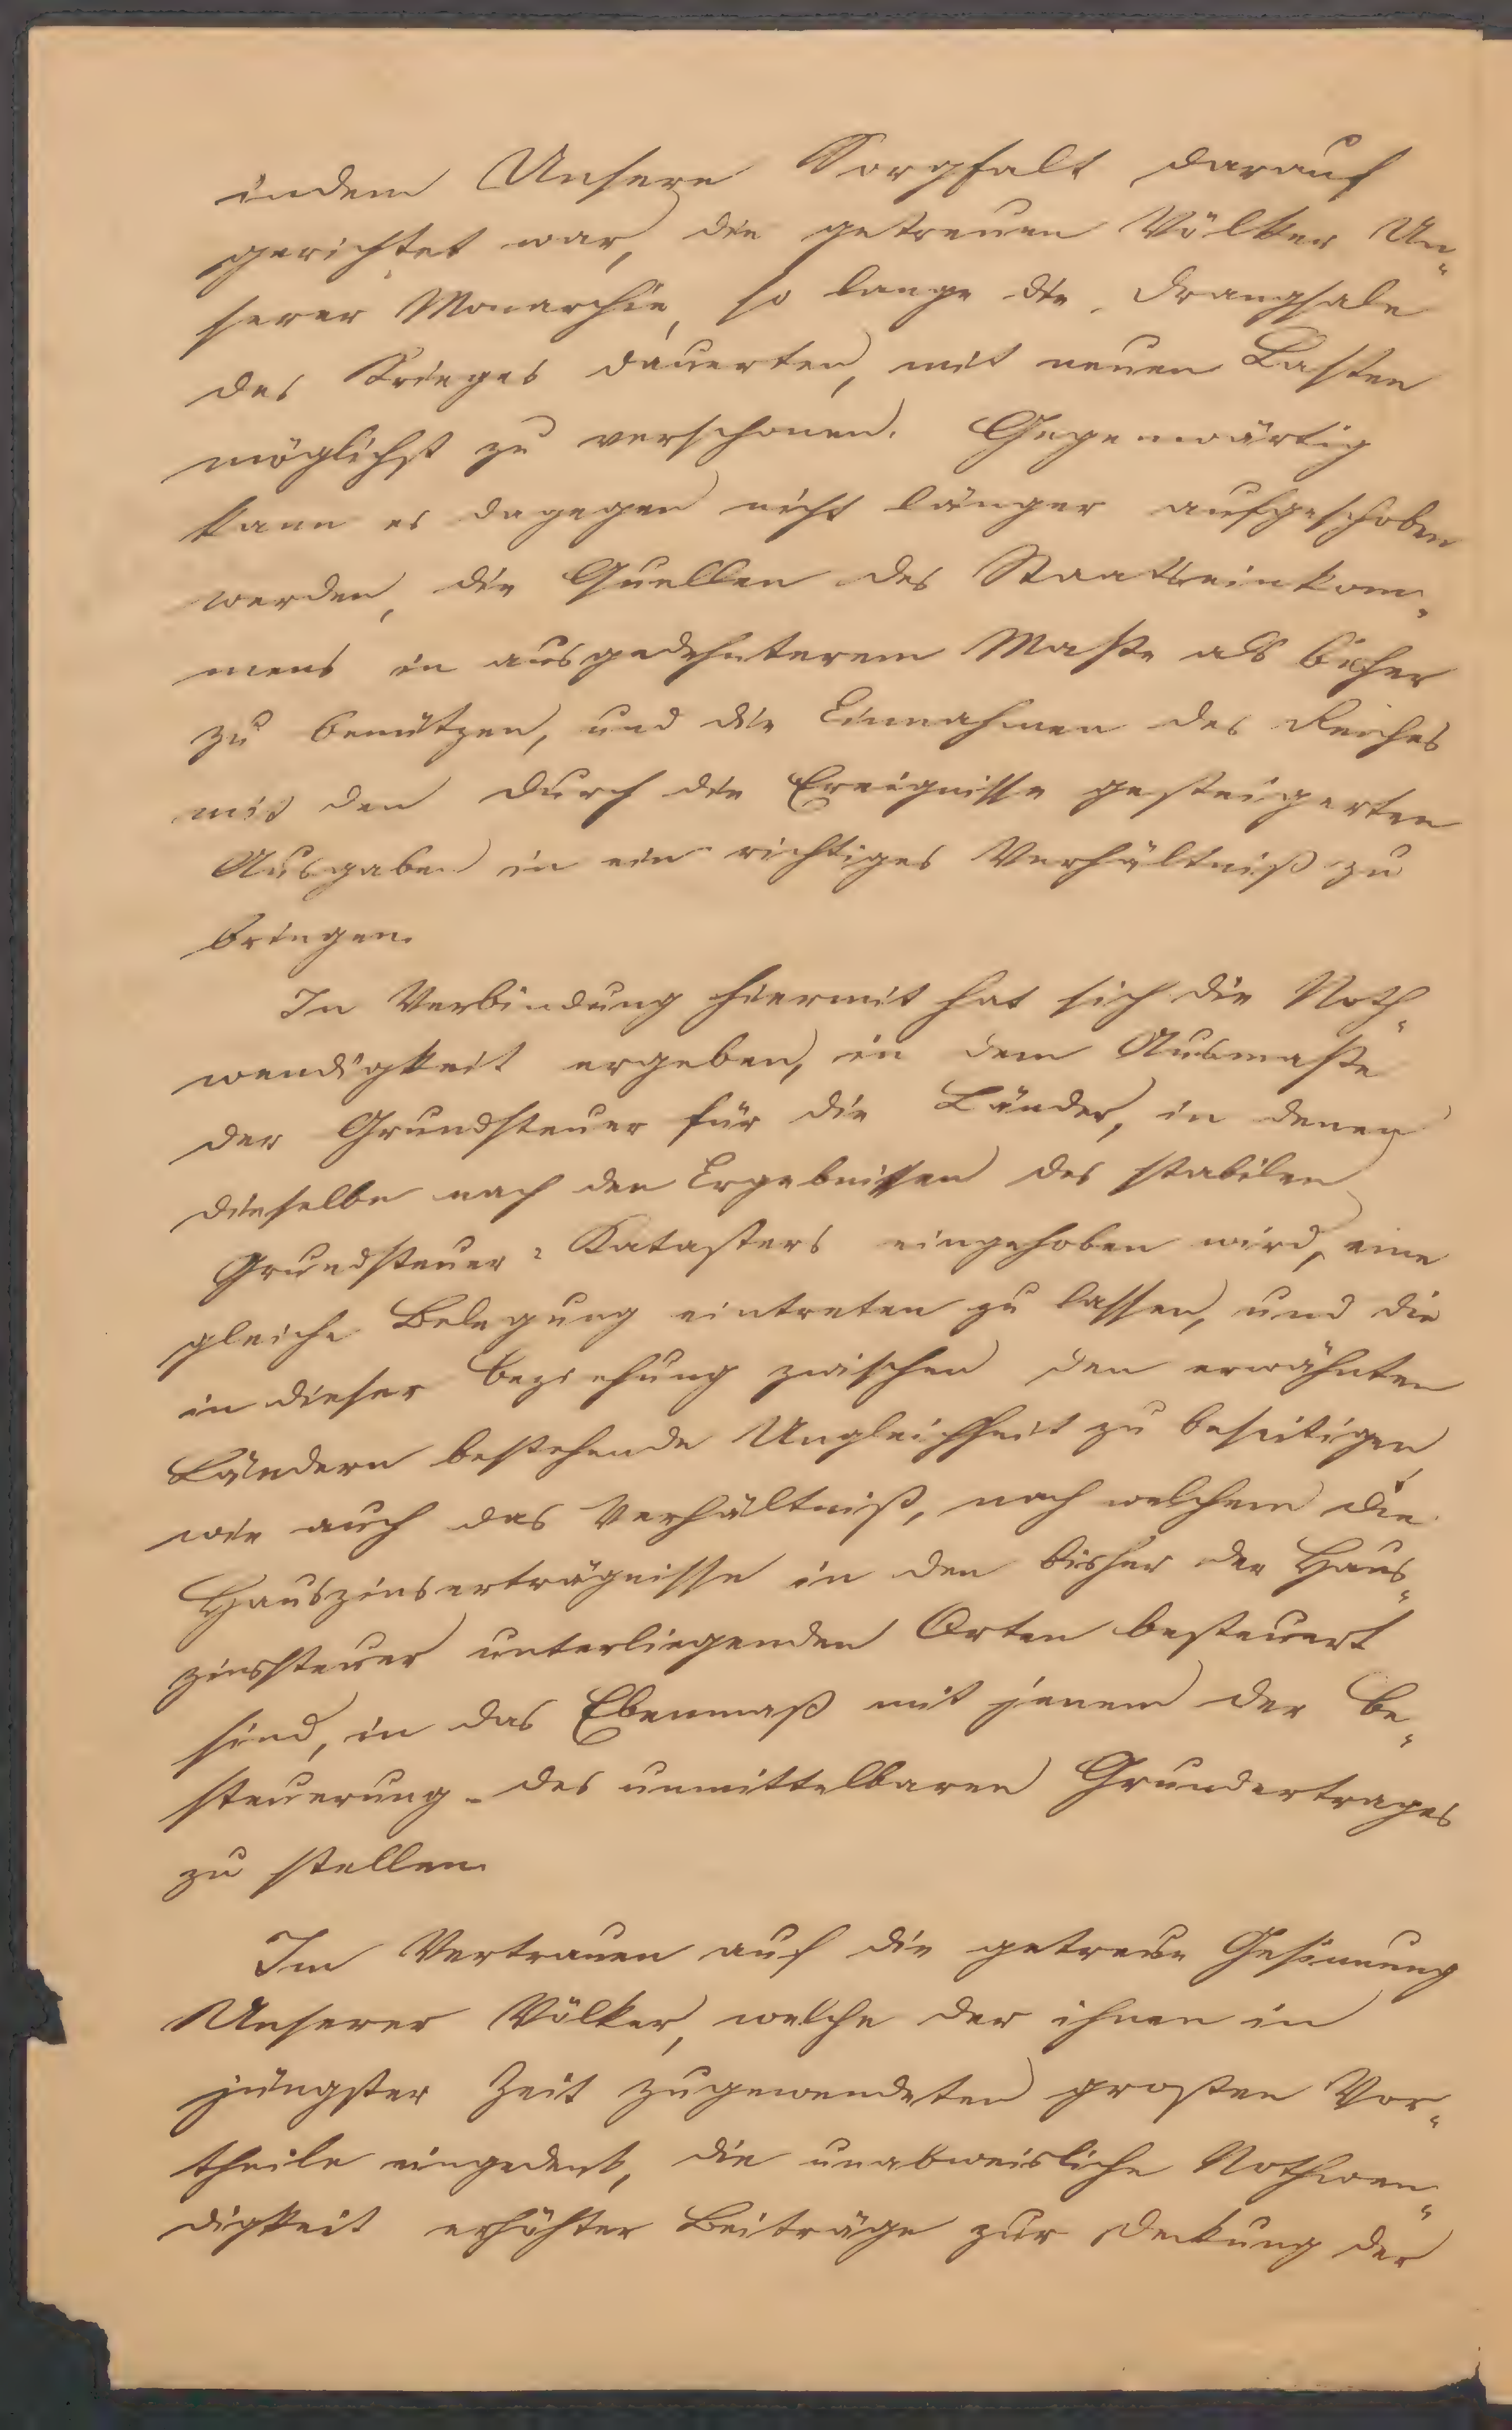 indem Unsere Sorgfalt darauf
gerichtet war, die getreuen Völker Un-
serer Monarchie, so lange die Drangsale
des Krieges dauerten, mit neuen Lasten
möglichst zu verschonen. Gegenwärtig
kann es dagegen nicht länger aufgeschoben
werden, die Quellen des Staatseinkom-
mens in ausgedehnterem Maße als bisher
zu benützen, und die Einnahmen des Reiches
mit den durch die Ereignisse gesteigerten
Ausgaben in ein richtiges Verhältniß zu
bringen.
In Verbindung hiermit hat sich die Noth-
wendigkeit ergeben, in dem Ausmaße
der Grundsteuer für die Länder, in denen
dieselbe nach den Ergebnissen des stabilen
Grundsteuer-Katasters eingehoben wird, eine
gleiche Belegung eintreten zu lassen, und die
in dieser Beziehung zwischen den erwähnten
Ländern bestehende Ungleichheit zu beseitigen,
wie auch das Verhältniß, nach welchem die
Hauszinserträgnisse in den bisher der Haus-
zinssteuer unterliegenden Orten besteuert
sind, in das Ebenmaß mit jenem der Be-
steuerung des unmittelbaren Grundertrages
zu stellen.
Im Vertrauen auf die getreue Gesinnung
Unserer Völker, welche der ihnen in
jüngster Zeit zugewendeten großen Vor-
theile eingedenk, die unabweisliche Nothwen-
digkeit erhöhter Beiträge zur Deckung der